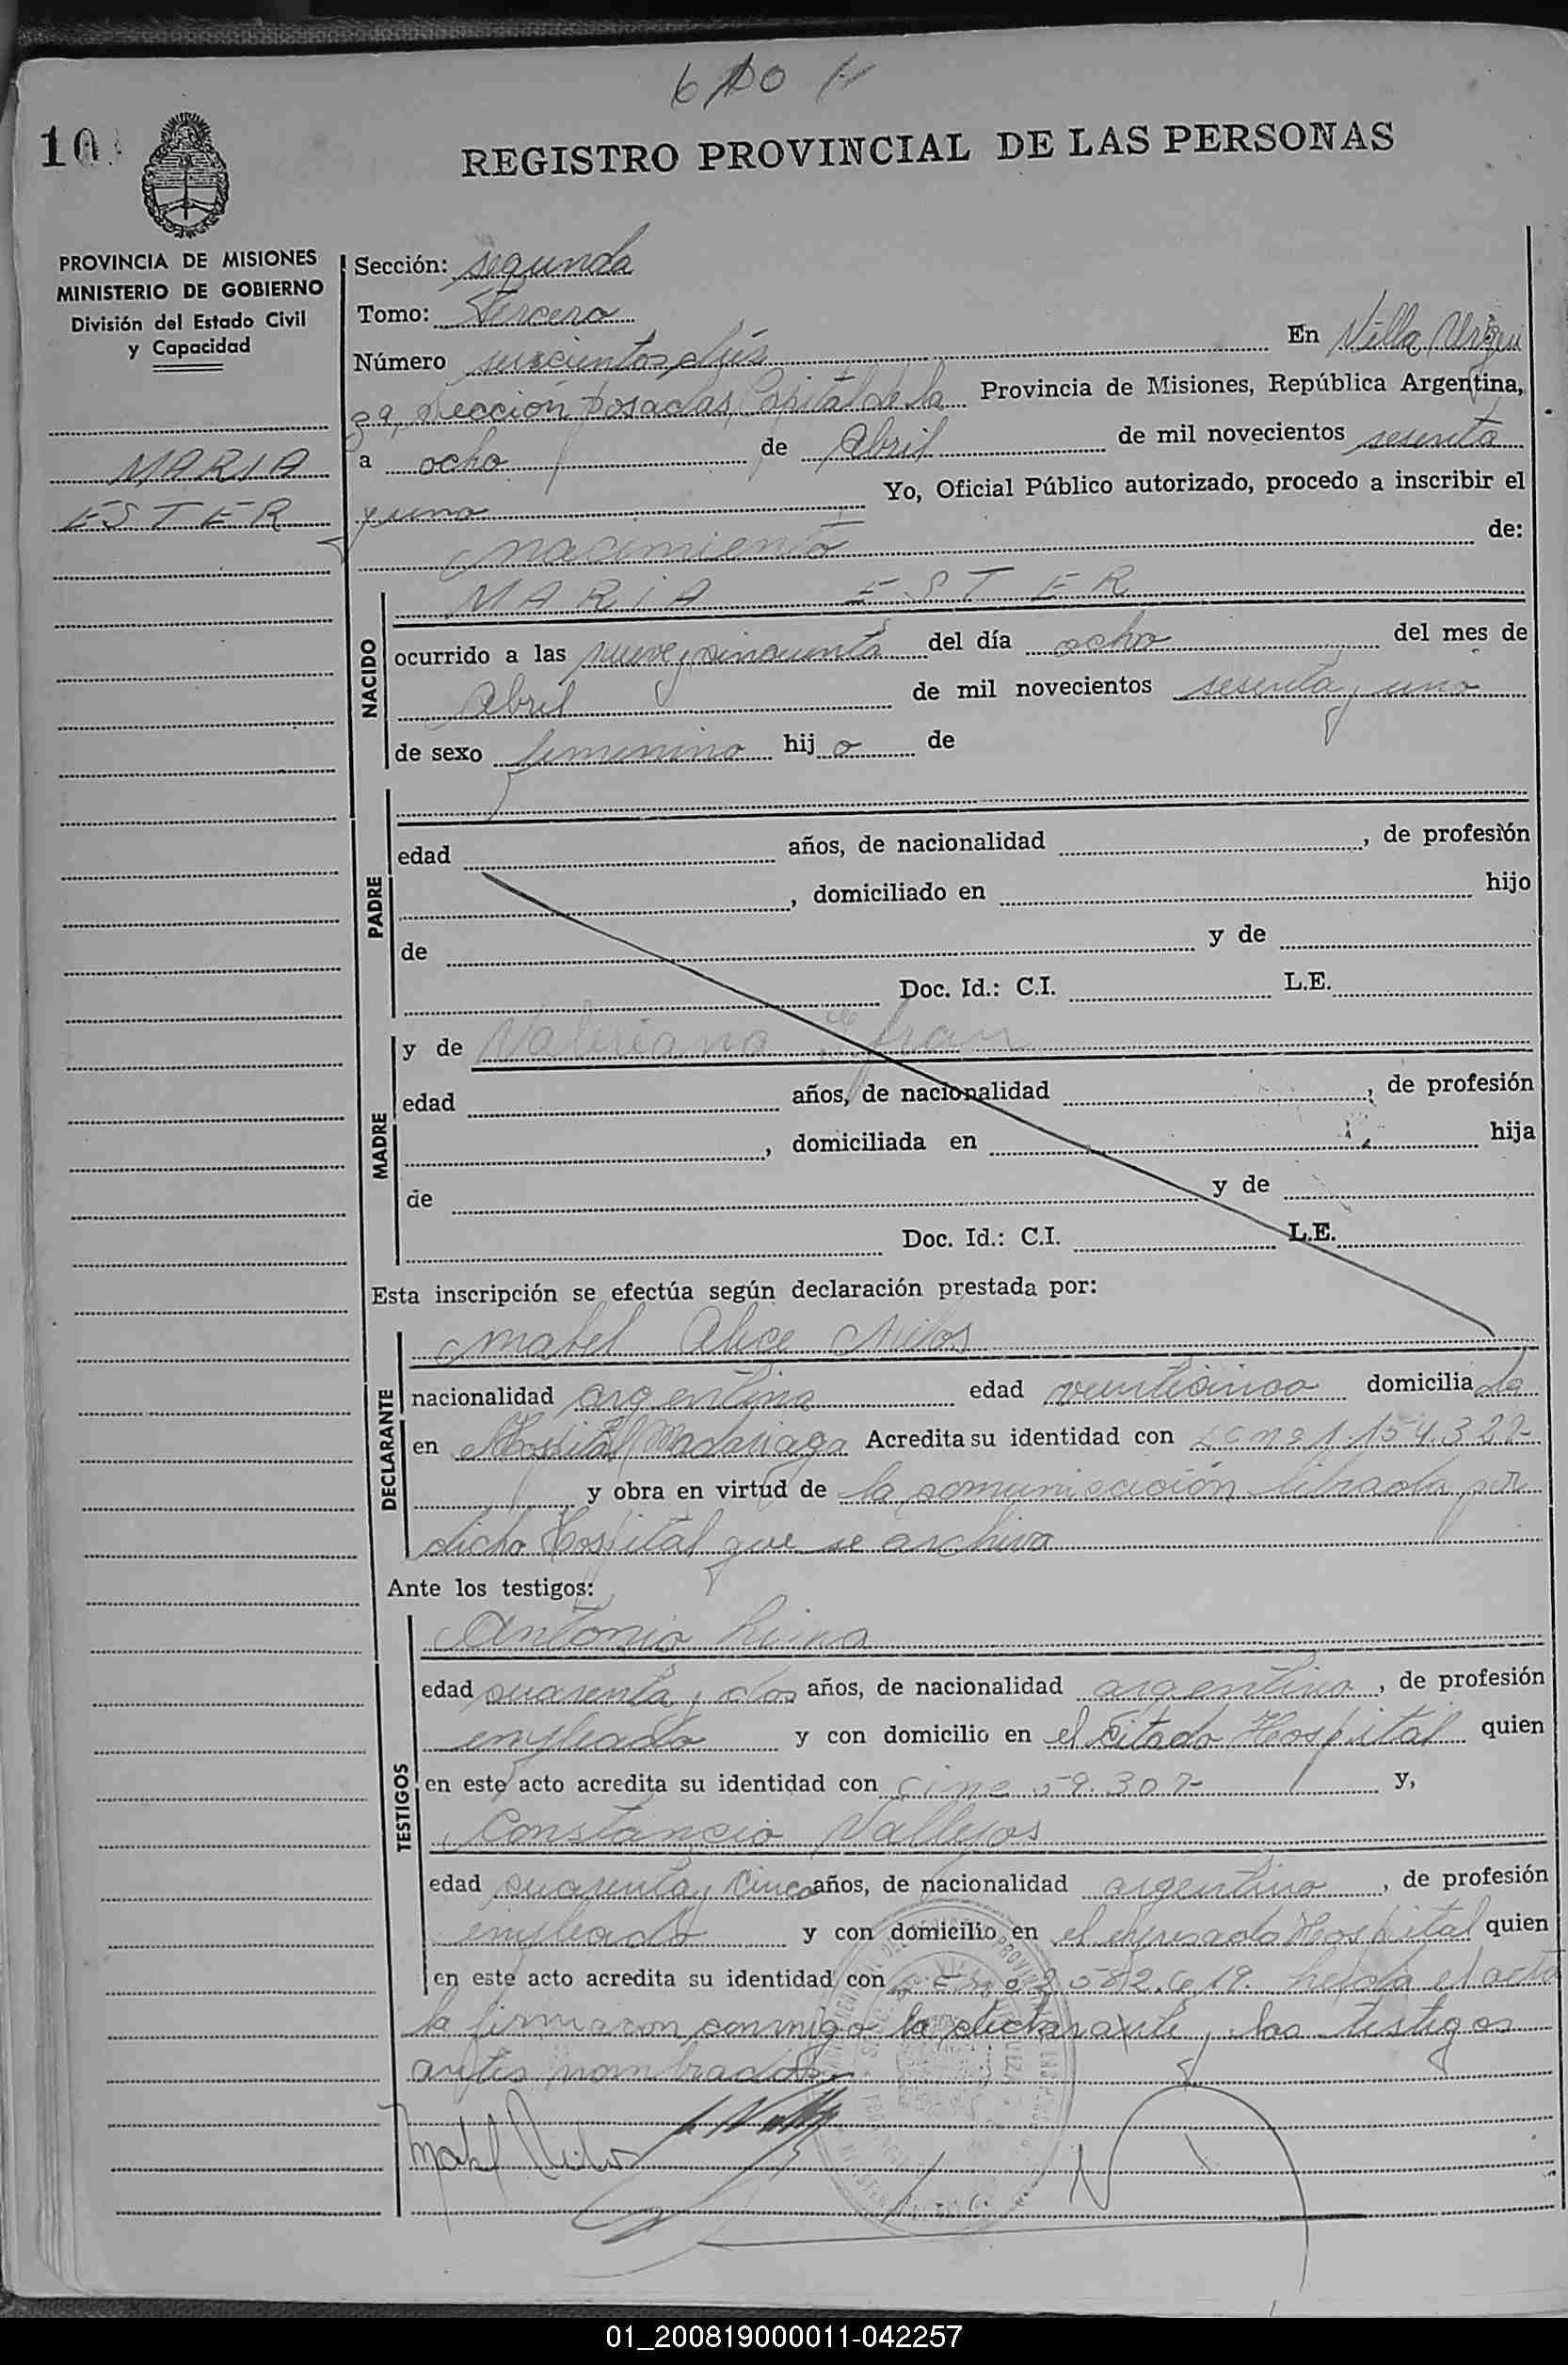 610
10
REGISTRO PROVINCIAL DE LAS PERSONAS
PROVINCIA DE MISIONES
MINISTERIO DE GOBIERNO
División del Estado Civil
y Capacidad
MARIA
ESTER
Sección: segunda
Tomo: Tercero
Número seiscientos diés En Villa Urqui
za, sección Posadas, Capital de la Provincia de Misiones, República Argentina,
a ocho de Abril de mil novecientos sesenta
y uno Yo, Oficial Público autorizado, procedo a inscribir el
nacimiento de:
NACIDO
MARIA ESTER
ocurrido a las nueve y cincuenta del día ocho del mes de
Abril de mil novecientos sesenta y uno
de sexo femenino hij a de
PADRE
edad años, de nacionalidad , de profesión
, domiciliado en hijo
de y de
Doc. Id.: C.I. L.E.
MADRE
y de Valeriana
edad años, de nacionalidad , de profesión
, domiciliada en hija
de y de
Doc. Id.: C.I. L.E.
Esta inscripción se efectúa según declaración prestada por:
DECLARANTE
Mabel Alice Nilos
nacionalidad argentina edad veinticinco domicilia da
en Hospital Madariaga Acredita su identidad con LC nº 1.154.322-
y obra en virtud de la comunicación librada por
dicho Hospital que se archiva
Ante los testigos:
TESTIGOS
Antonio Lima
edad cuarenta y dos años, de nacionalidad argentino, de profesión
empleado y con domicilio en el citado Hospital quien
en este acto acredita su identidad con CI nº 59.307- y,
Constancio Vallejos
edad cuarenta y cinco años, de nacionalidad argentino, de profesión
empleado y con domicilio en el expresado Hospital quien
en este acto acredita su identidad con 2.582.619. leída el acta
la firmaron conmigo la declarante y los testigos
antes nombrados
Mabel Nilos
01_200819000011-042257